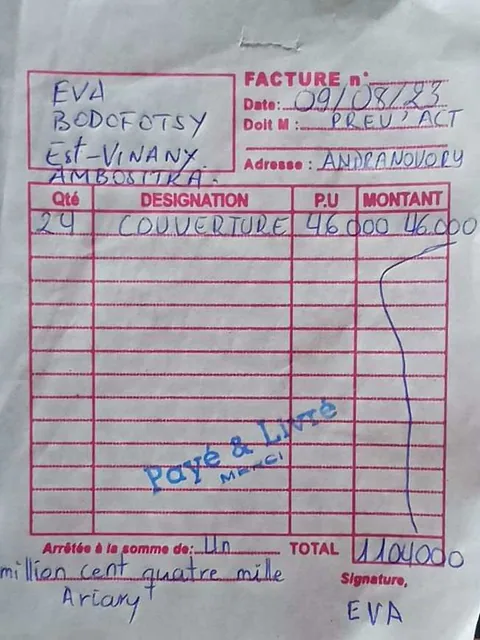 EVA
BODOFOTSY
Est-VINANY.
AMBOSITRA.
FACTURE n°
Date: 09/08/23
Doit M : PREV'ACT
Adresse : ANDRANOVORY
Qté DESIGNATION P.U MONTANT
24 COUVERTURE 46000 46.000
Payé & Livré
MERCI
Arrêtée à la somme de: Un TOTAL 1104000
million cent quatre mille
Ariary
Signature,
EVA